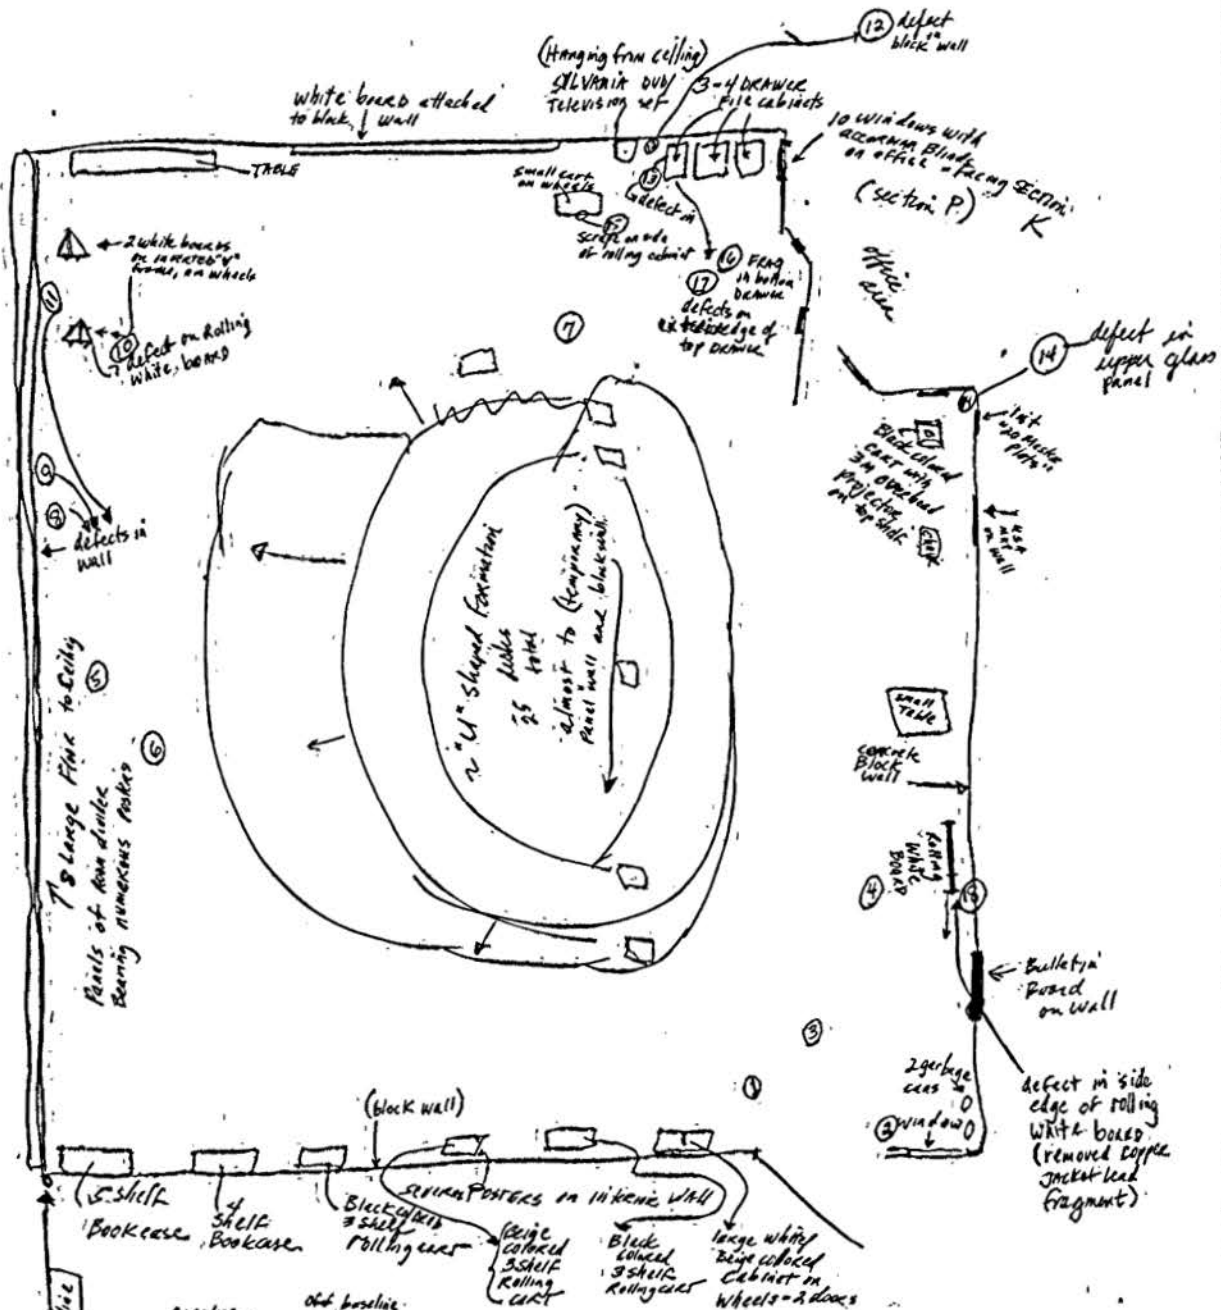 12 defect in
block wall
(Hanging from Ceiling)
SYLVANIA DVD/
Television set
3-4 DRAWER
File cabinets
White board attached
to block wall
10 windows with
accordian Blinds
on office - facing Section
K
(section P.)
TABLE
small cart
on wheels
13
defect in
15
scrape on side
of rolling cabinet
16 FRAG
in bottom
DRAWER
17
defects on
edge of
top DRAWER
office
area
2 white boards
on inverted "V"
frame, on wheels
11
10
defect on Rolling
White board
7
14 defect in
upper glass
panel
14
"20 Master
Plots"
Black colored
cart with
3M overhead
projector
on top shelf
chair
1
on wall
9
8
defects in
wall
2 "U" Shaped Formation
25 desks
total
almost to (temporary)
Panel wall and block wall
5
6
8 Large Floor to Ceiling
Panels of Room divider
Bearing numerous Posters
small
Table
concrete
Block
Wall
Rolling
White
BOARD
4
18
Bulletin
Board
on wall
3
1
2 garbage
cans
2 window
defect in side
edge of rolling
White board
(removed copper
Jacket lead
fragment)
(block wall)
5 shelf
Bookcase
4
Shelf
Bookcase
Black colored
3 shelf
rolling cart
SEVERAL POSTERS on interior WALL
Beige
colored
3 shelf
Rolling
CART
Black
colored
3 shelf
Rolling cart
large white/
Beige colored
Cabinet on
Wheels - 2 doors
off baseline